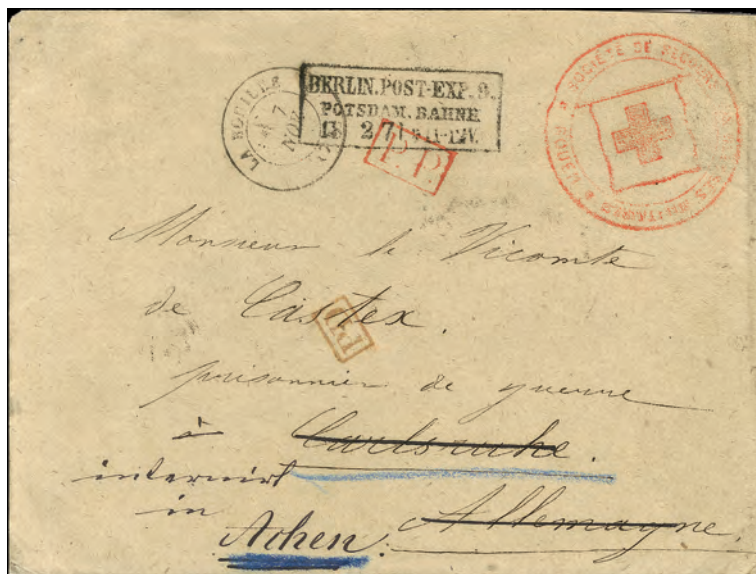 LA BOUILLE
7
NOV
BERLIN.POST-EXP. 9.
POTSDAM. BAHNH
2 71
SOCIÉTÉ DE SECOURS MILITAIRES ROUEN
P.P.
Monsieur le Vicomte
de Castex.
PD
prisonnier de guerre
à Carlsruhe.
internirt
in
Achen. Allemagne.